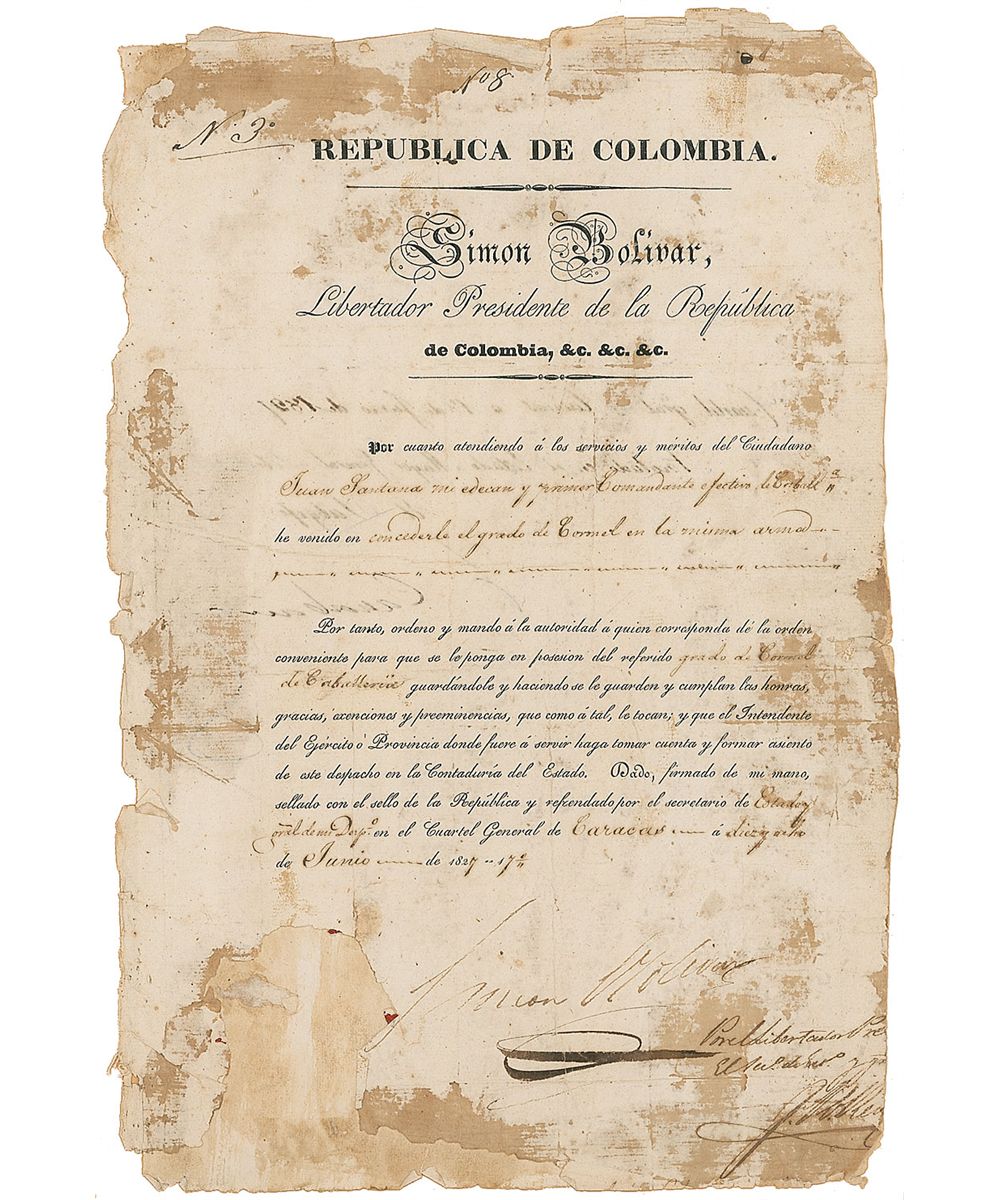 Nº 8.
N. 3º
REPUBLICA DE COLOMBIA.
Simon Bolivar,
Libertador Presidente de la República
de Colombia, &c. &c. &c.
Por cuanto atendiendo á los servicios y méritos del Ciudadano
Juan Santana mi edecan y primer Comandante efectivo de Caball.ª
he venido en concederle el grado de Cornel en la misma arma
Por tanto, ordeno y mando á la autoridad á quien corresponda dé la orden
conveniente para que se le ponga en posesion del referido grado de Cornel
de Caballeria guardándole y haciendo se le guarden y cumplan las honras,
gracias, exenciones y preeminencias, que como á tal, le tocan; y que el Intendente
del Ejército o Provincia donde fuere á servir haga tomar cuenta y formar asiento
de este despacho en la Contaduría del Estado. Dado, firmado de mi mano,
sellado con el sello de la República y refrendado por el secretario de Estado y
gral de mi Desp.º en el Cuartel General de Caracas á diez y ocho
de Junio de 1827 .. 17º
Simon Bolivar
Por el Libertador Pre
El Sec.